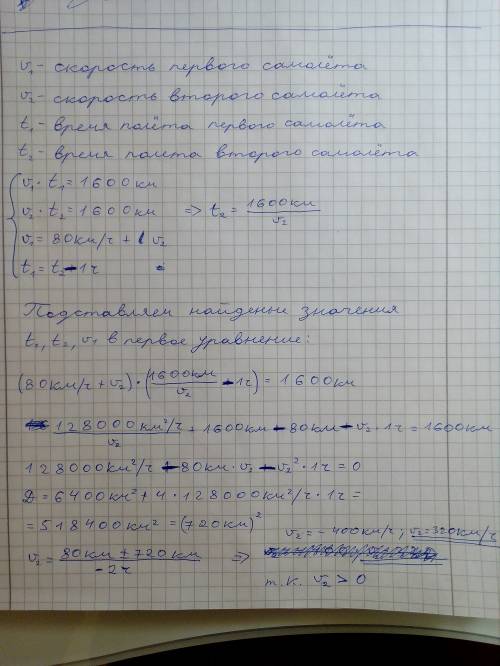 v₁ - скорость первого самолёта
v₂ - скорость второго самолёта
t₁ - время полёта первого самолёта
t₂ - время полета второго самолёта
v₁ · t₁ = 1600 км
v₂ · t₂ = 1600 км => t₂ = 1600 км / v₂
v₁ = 80 км/ч + v₂
t₁ = t₂ - 1ч
Подставляем найденые значения
t₁, t₂, v₁ в первое уравнение:
(80 км/ч + v₂) · (1600 км / v₂ - 1ч) = 1600 км
128000 км²/ч / v₂ + 1600 км - 80 км - v₂ · 1ч = 1600 км
128000 км²/ч - 80 км · v₂ - v₂² · 1ч = 0
D = 6400 км² + 4 · 128000 км²/ч · 1ч =
= 518400 км² = (720 км)²
v₂ = - 400 км/ч; v₂ = 320 км/ч
v₂ = 80 км ± 720 км / -2ч =>
т.к. v₂ > 0